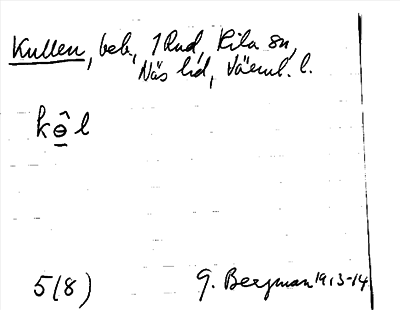 Kullen, beb., 1 Rud, Kila sn,
Näs hd, Värml. l.
kɵ̠̂l
5(8) G. Bergman 1913-14